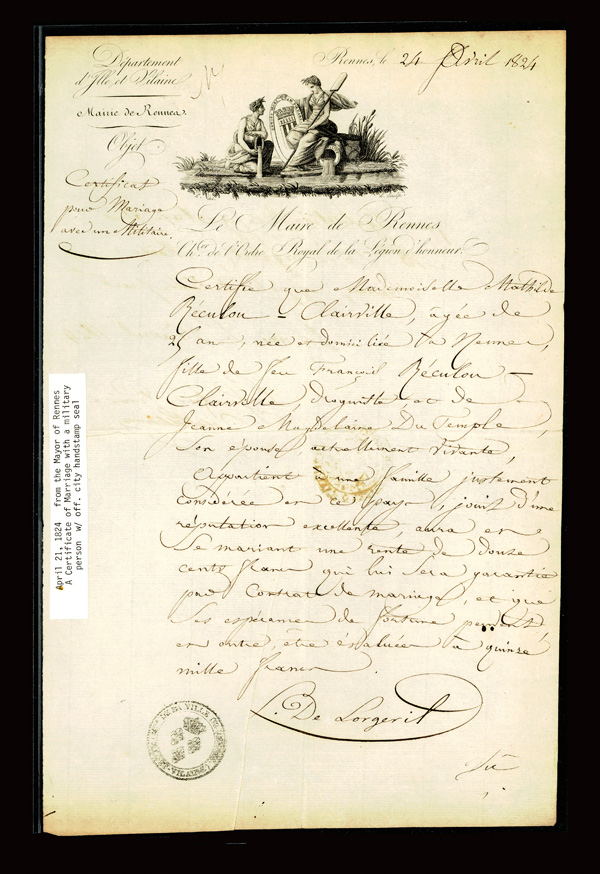 Département
d'Ille et Vilaine
Mairie de Rennes.
Objet
Certificat
pour Mariage
avec un Militaire.
Rennes, le 24 Avril 1824
Le Maire de Rennes
Ch.er de l'Ordre Royal de la Légion d'honneur.
Certifie que Mademoiselle Mathilde
Réculou = Clairville, âgée de
25 ans, née et domiciliée à Rennes,
fille de feu François Réculou =
Clairville, Droguiste et de
Jeanne Magdelaine Du Temple,
son épouse, actuellement vivante,
appartient à une famille justement
considérée en ce pays, jouit d'une
réputation excellente, aura en
se mariant une rente de douze
cents francs qui lui sera garantie
par Contrat de mariage, et que
ses espérances de fortune peuvent,
en outre, être évaluées à quinze
mille francs
L. De Lorgeril
April 21, 1824 from the Mayor of Rennes
A Certificate of Marriage with a military
person w/ off. city handstamp seal
VILLE
VILAINE